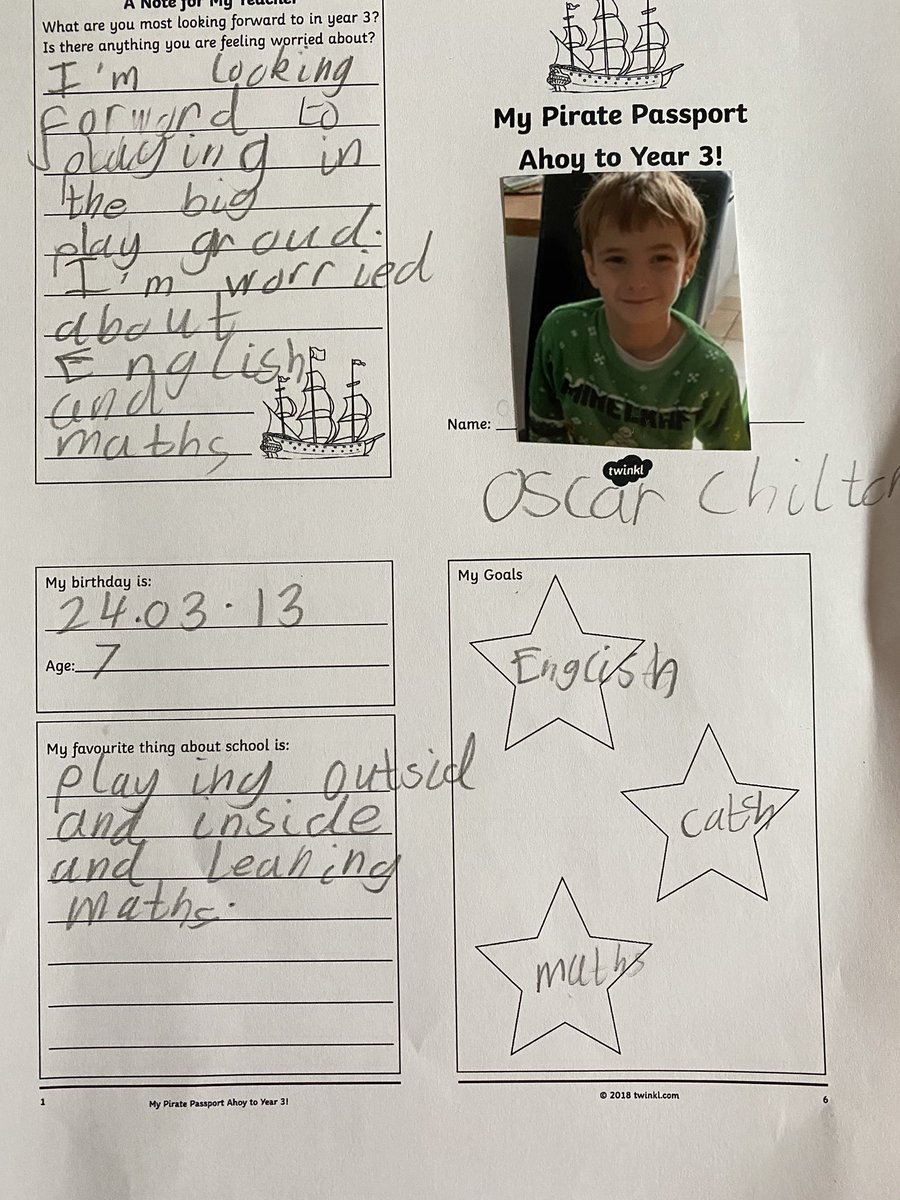 A Note for My Teacher
What are you most looking forward to in year 3?
Is there anything you are feeling worried about?
I'm looking
forward to
playing in
the big
play groud.
I'm worried
about
English
and
maths
My Pirate Passport
Ahoy to Year 3!
MINECRAFT
Name:
twinkl
Oscar Chilton
My birthday is:
24.03.13
Age: 7
My favourite thing about school is:
play ing outsid
and inside
and leaning
maths.
1
My Pirate Passport Ahoy to Year 3!
My Goals
English
catsh
maths
© 2018 twinkl.com
6